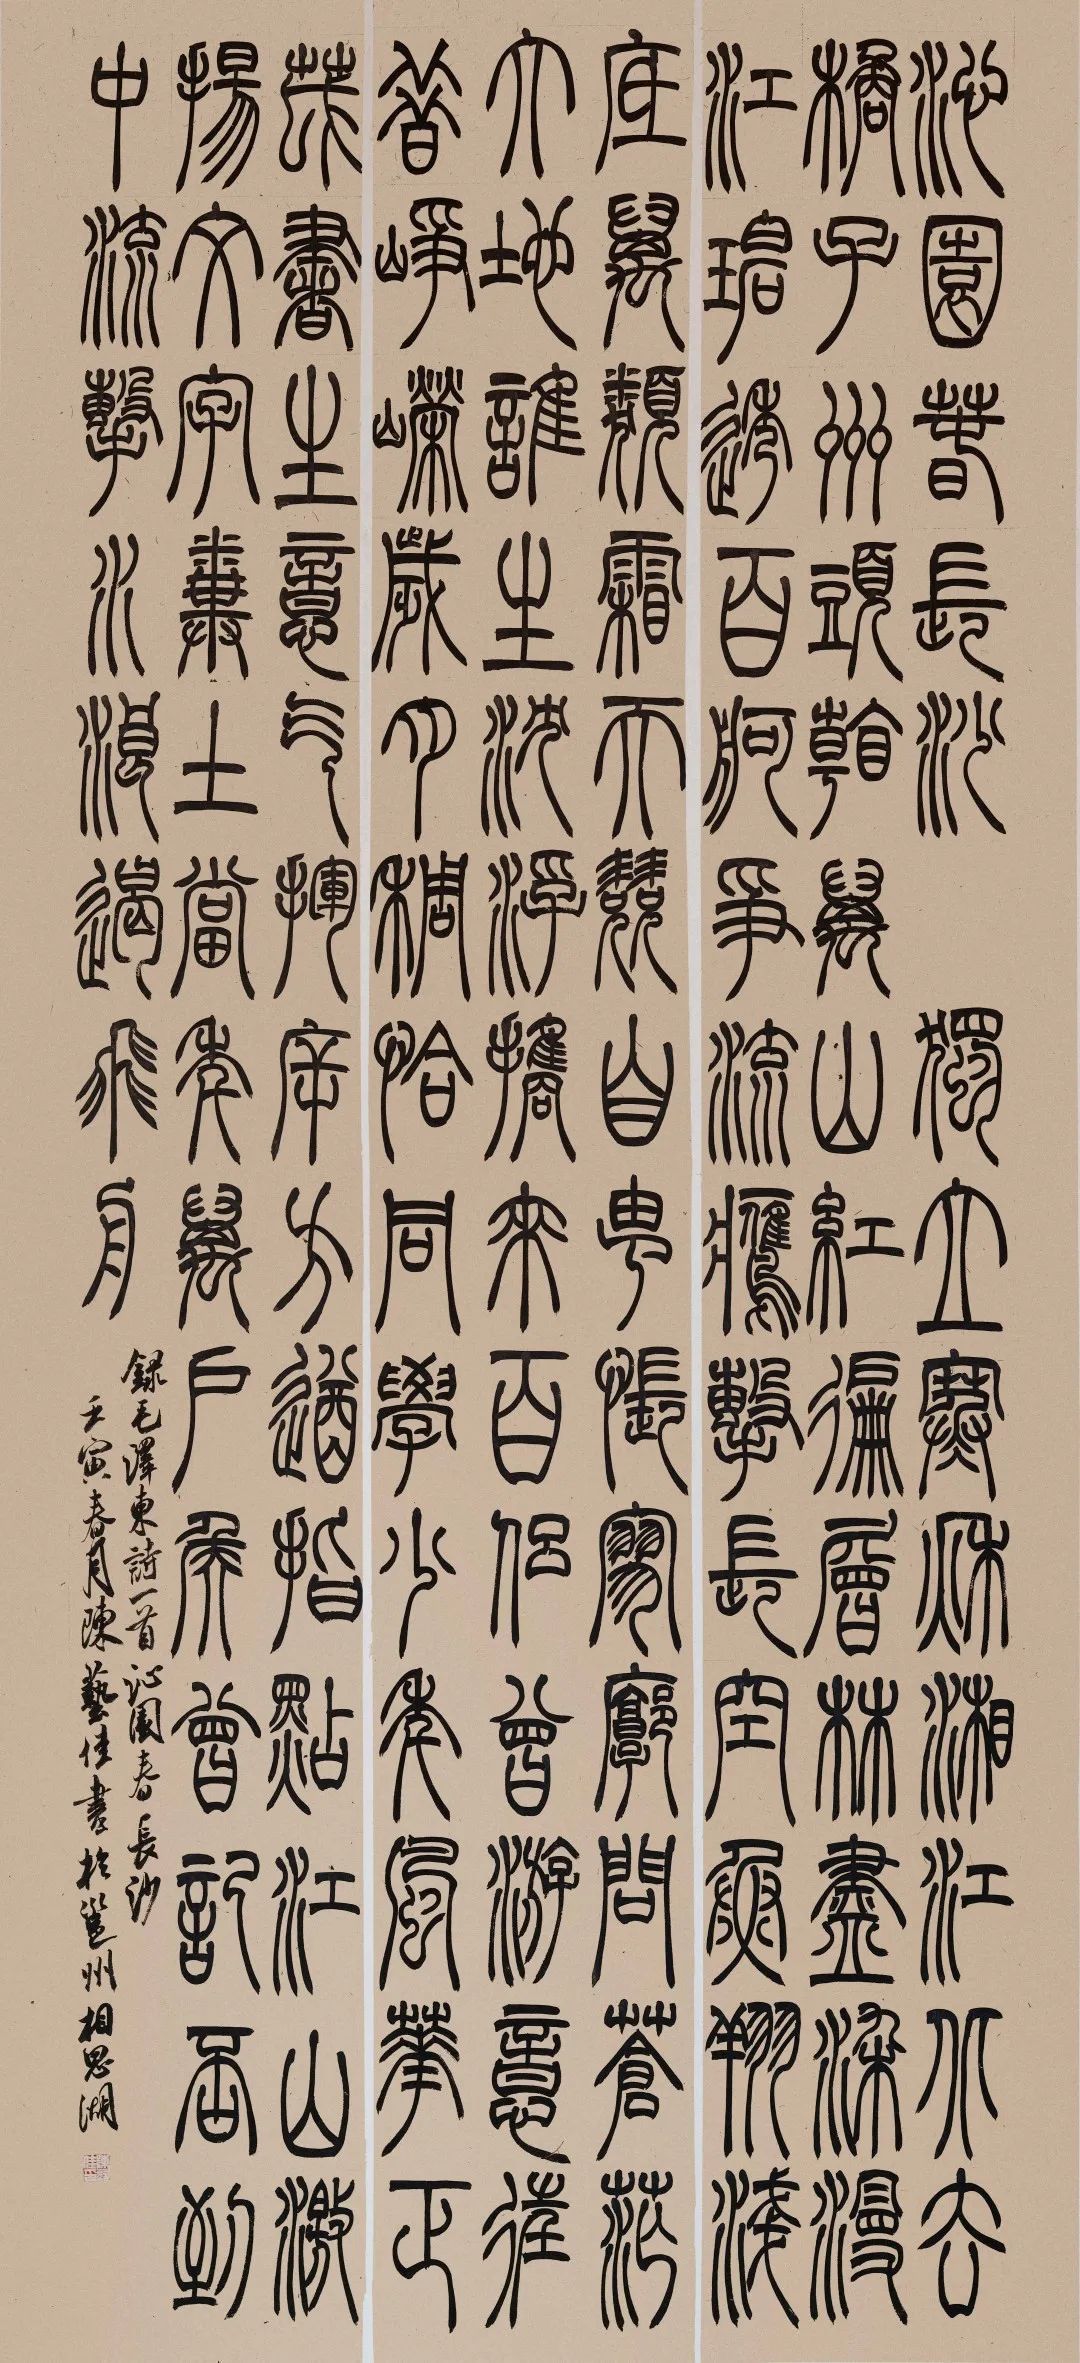 沁園春長沙 獨立寒秋湘江北去
橘子州頭看萬山紅徧層林盡染漫
江碧透百舸爭流鷹擊長空魚翔淺
底萬類霜天競自由悵寥廓問蒼茫
大地誰主沈浮攜來百侶曾游憶往
昔崢嶸歲月稠恰同學少年風華正
茂書生意气揮斥方遒指點江山激
揚文字糞土當年萬戶矦曾記否到
中流擊水浪遏飛舟
錄毛澤東詩一首沁園春長沙
壬寅春月陳藝佳書於邕州相思湖